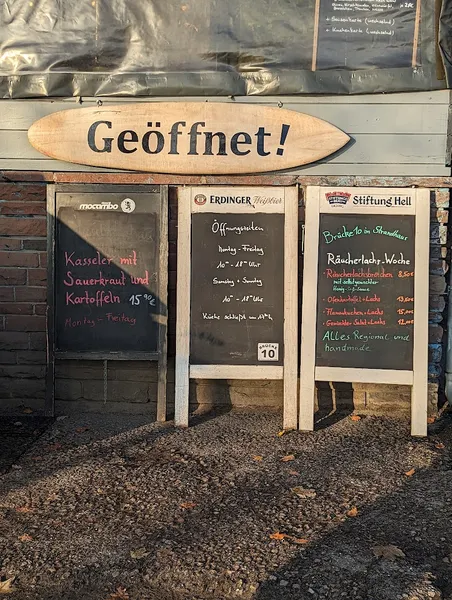 + Kuchenkarte (wechselnd)
Geöffnet!
mocambo
Kasseler mit
Sauerkraut und
Kartoffeln 15,90€
Montag - Freitag
ERDINGER Weißbier
Öffnungszeiten
Montag - Freitag
10 - 18 Uhr
Samstag + Sonntag
10 - 18 Uhr
Küche schließt um
BRÜCKE
10
Stiftung Hell
Brücke 10 im Strandhaus
Räucherlachs-Woche
- Räucherlachsbrötchen 8,50€
mit selbstgemachter
Honig-Senf-Sauce
- Ofenkartoffel + Lachs
- Flammkuchen + Lachs
- Gemischter Salat + Lachs
Alles Regional und
handmade